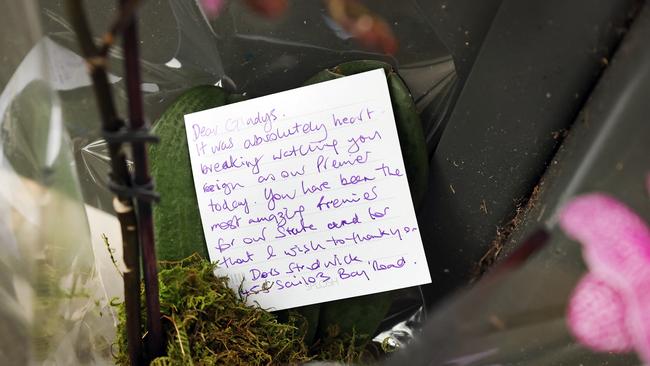 Dear Gladys.
It was absolutely heart
breaking watching you
resign as our Premier
today. You have been the
most amazing Premier
for our State and for
that I wish to thank you
Bay Road.